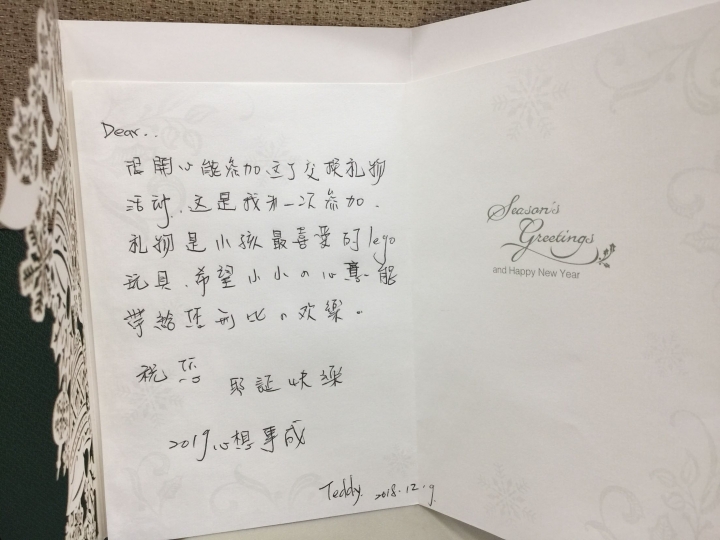 Dear..
很開心能参加这了交换礼物
活动,这是我第一次参加.
礼物是小孩最喜爱的lego
玩具.希望小小の心意能
带給您无比の欢樂。
祝您
耶誕快樂
2019心想事成
Teddy. 2018.12.9.
Season's
Greetings
and Happy New Year